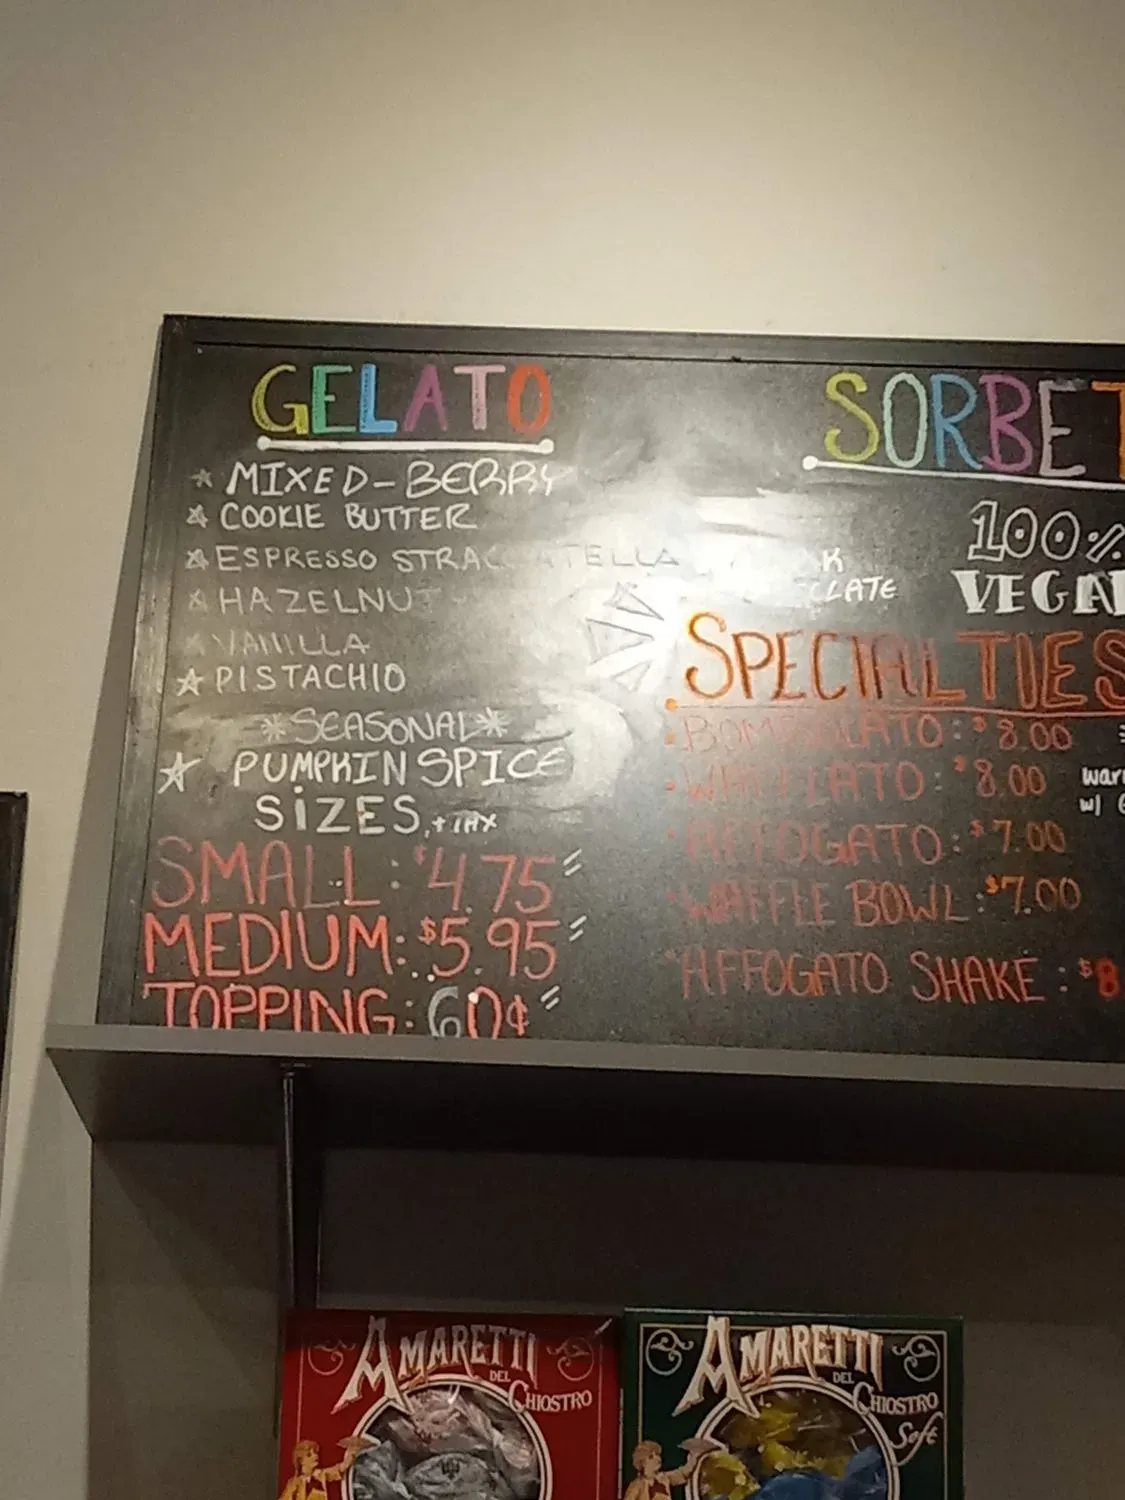 GELATO
MIXED-BERRY
COOKIE BUTTER
ESPRESSO STRACCIATELLA
HAZELNUT
VANILLA
PISTACHIO
*SEASONAL*
PUMPKIN SPICE
SIZES + TAX
SMALL: $4.75
MEDIUM: $5.95
TOPPING: 60¢
SORBET
100%
VEGAN
SPECIALTIES
BOMBOLATO: $8.00
WAFFLATO: $8.00
w/
AFFOGATO: $7.00
WAFFLE BOWL: $7.00
AFFOGATO SHAKE: $8
AMARETTI
DEL
CHIOSTRO
AMARETTI
DEL
CHIOSTRO
Soft